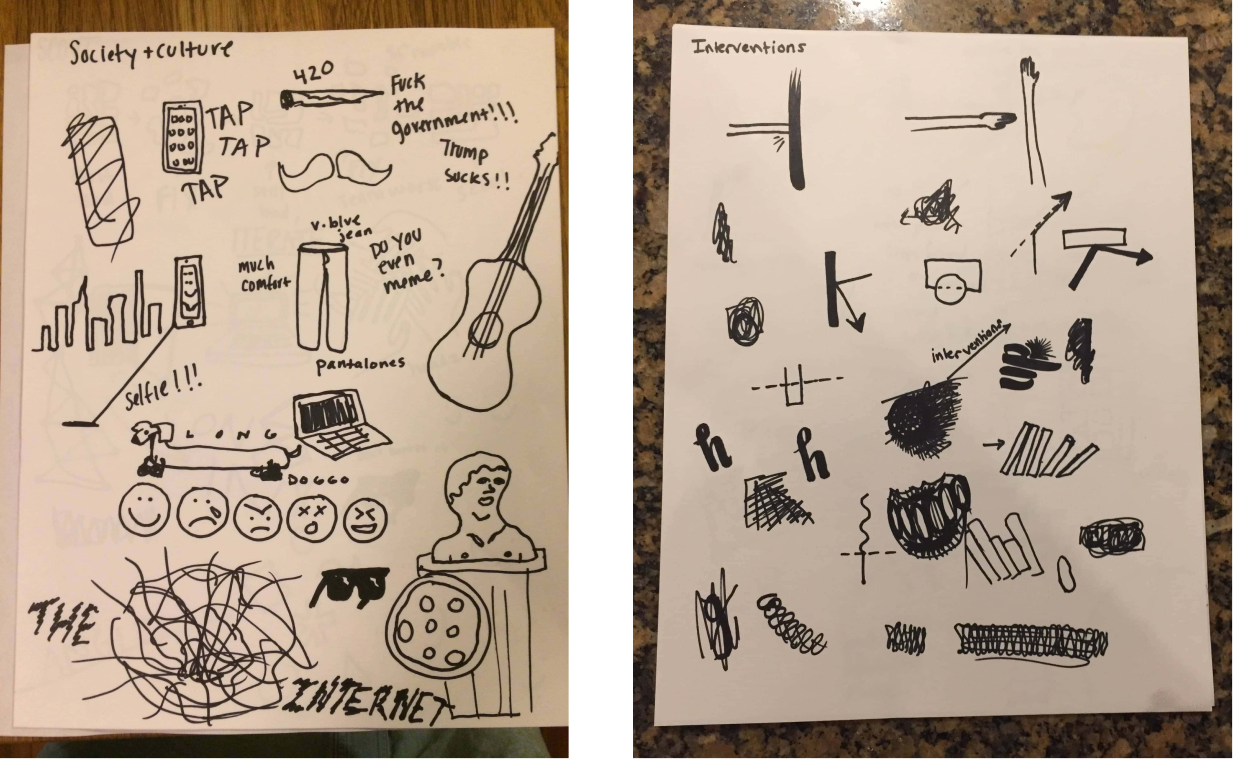 Society + culture
420
Fuck
the
government!!!
TAP
TAP
TAP
Trump
sucks!!
v. blue
jean
much
comfort
DO YOU
even
meme?
pantalones
Selfie!!!
LONG
DOGGO
THE
INTERNET
Interventions
interventions
h
h